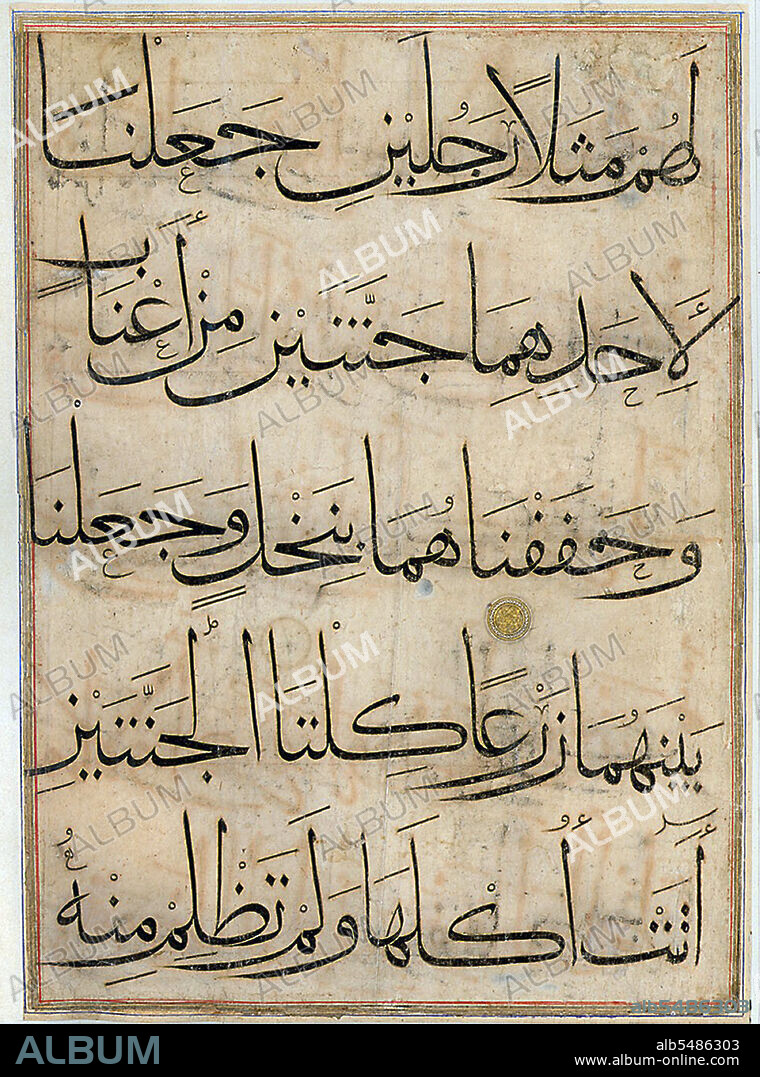 لَهُمْ مَثَلًا رَجُلَيْنِ جَعَلْنَا
لِأَحَدِهِمَا جَنَّتَيْنِ مِنْ أَعْنَابٍ
وَحَفَفْنَاهُمَا بِنَخْلٍ وَجَعَلْنَا
بَيْنَهُمَا زَرْعًا كِلْتَا الْجَنَّتَيْنِ
أَتَتْ أُكُلَهَا وَلَمْ تَظْلِمْ مِنْهُ
ALBUM
alb5486303
www.album-online.com